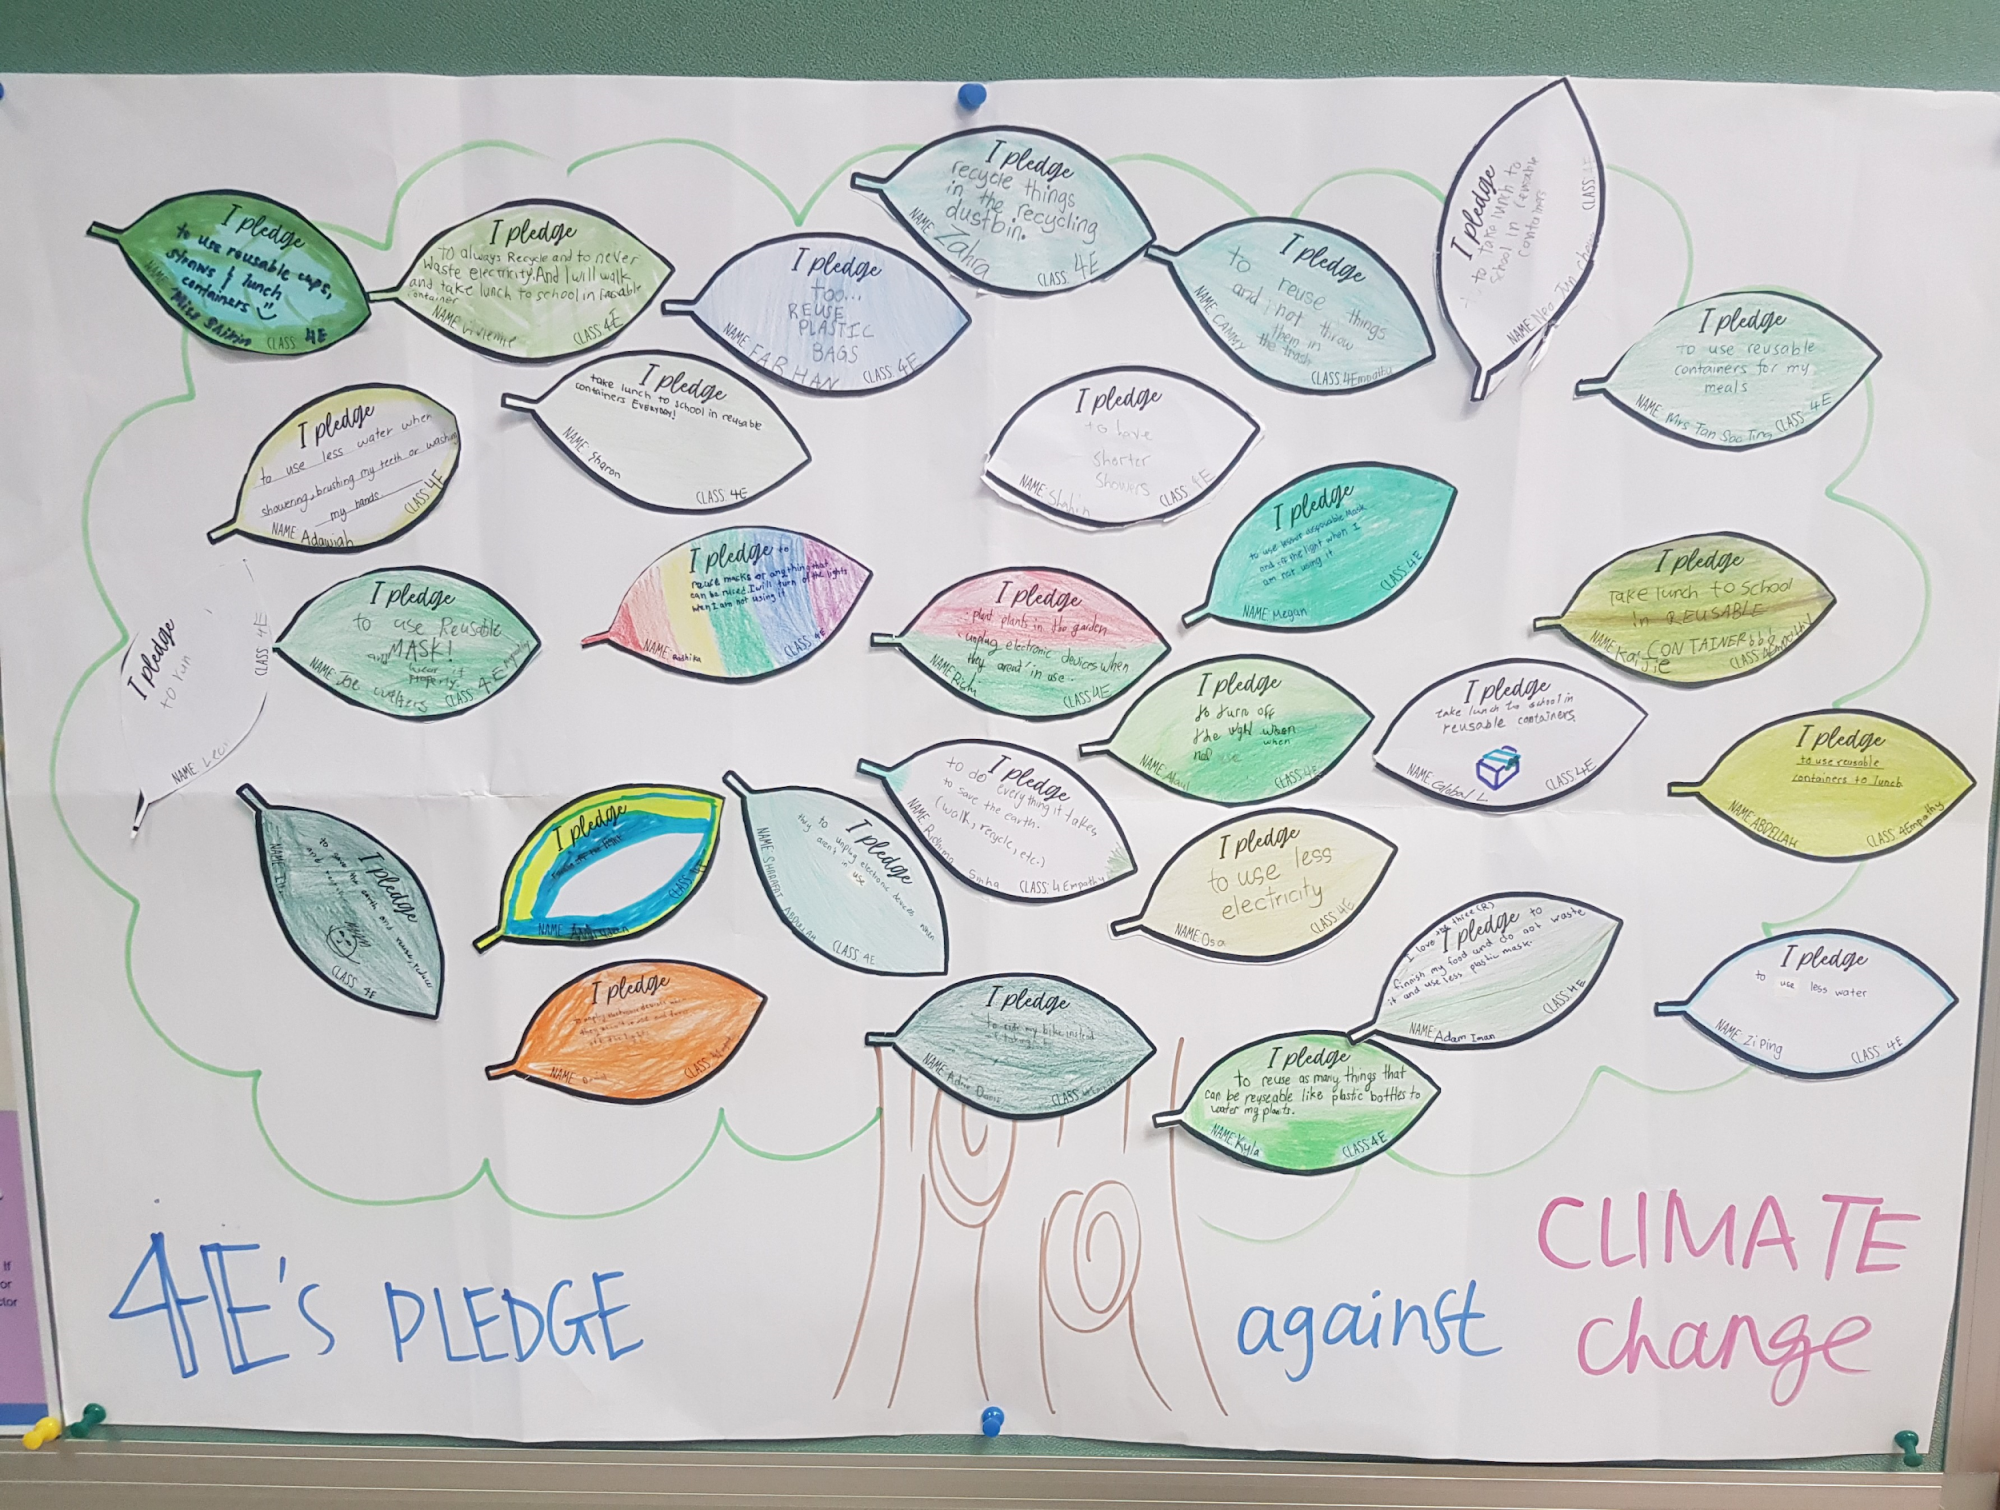 I pledge
to use reusable cups,
straws & lunch
containers
NAME: Miss Shirin
CLASS: 4E
I pledge
to always Recycle and to never
waste electricity. And I will walk
and take lunch to school in
container
NAME: Vivienne
CLASS: 4E
I pledge
too...
REUSE
PLASTIC
BAGS
NAME: FARHAN
CLASS: 4E
I pledge
recycle things
in the recycling
dustbin.
NAME: Zahra
CLASS: 4E
I pledge
to reuse things
and not throw
them in
the trash
NAME: CAMMY
CLASS: 4Empathy
I pledge
to take lunch to
school in
containers
NAME:
CLASS: 4E
I pledge
to use reusable
containers for my
meals
NAME: Mrs Tan Soo Ting
CLASS: 4E
I pledge
to use less water when
showering, brushing my teeth or washing
my hands.
NAME:
CLASS: 4E
I pledge
take lunch to school in reusable
containers EVERYDAY!
NAME: Sharon
CLASS: 4E
I pledge
to have
shorter
showers
NAME: Shahin
CLASS: 4E
I pledge
to use lesser disposable mask
and off the light when I
am not using it
NAME: Megan
CLASS: 4E
I pledge
Take lunch to school
In REUSABLE
NAME: Kai Jie
CLASS: 4Empathy
I pledge
to run
NAME: Levi
CLASS: 4E
I pledge
to use Reusable
MASK!
and wear it
Properly.
NAME:
CLASS: 4-Empathy
I pledge to
reuse masks or anything that
can be reused. I will turn of the lights
when I am not using it
NAME: Radhika
CLASS: 4E
I pledge
· plant plants in the garden
· unplug electronic devices when
they arent' in use.
NAME: Rishi
CLASS: 4E
I pledge
to turn off
the light when
not use
when
NAME:
CLASS: 4E
I pledge
take lunch to school in
reusable containers.
NAME: Global L
CLASS: 4E
I pledge
to use reusable
containers to lunch
NAME: ABDELLAH
CLASS: 4Empathy
I pledge
to save the earth and reuse, reduce
and
NAME:
CLASS: 4E
I pledge
NAME:
CLASS: 4E
I pledge
to unplug electronic devices when
they aren't in use
NAME: SHARAFAT ABDULLAH
CLASS: 4E
I pledge
to do everything it takes
to save the earth.
(walk, recycle, etc)
NAME: Sinha
CLASS: 4 Empathy
I pledge
to use less
electricity
NAME: Osa
CLASS: 4E
I love the three (R)
I pledge to
finnish my food and do not waste
it and use less plastic mask.
NAME: Adam Iman
CLASS: 4E
I pledge
to use less water
NAME: Zi Ping
CLASS: 4E
I pledge
NAME:
CLASS:
I pledge
to ride my bike instead
NAME:
CLASS:
I pledge
to reuse as many things that
can be reyseable like plastic bottles to
water my plants.
NAME: Kyla
CLASS: 4E
4E's PLEDGE
against
CLIMATE
change